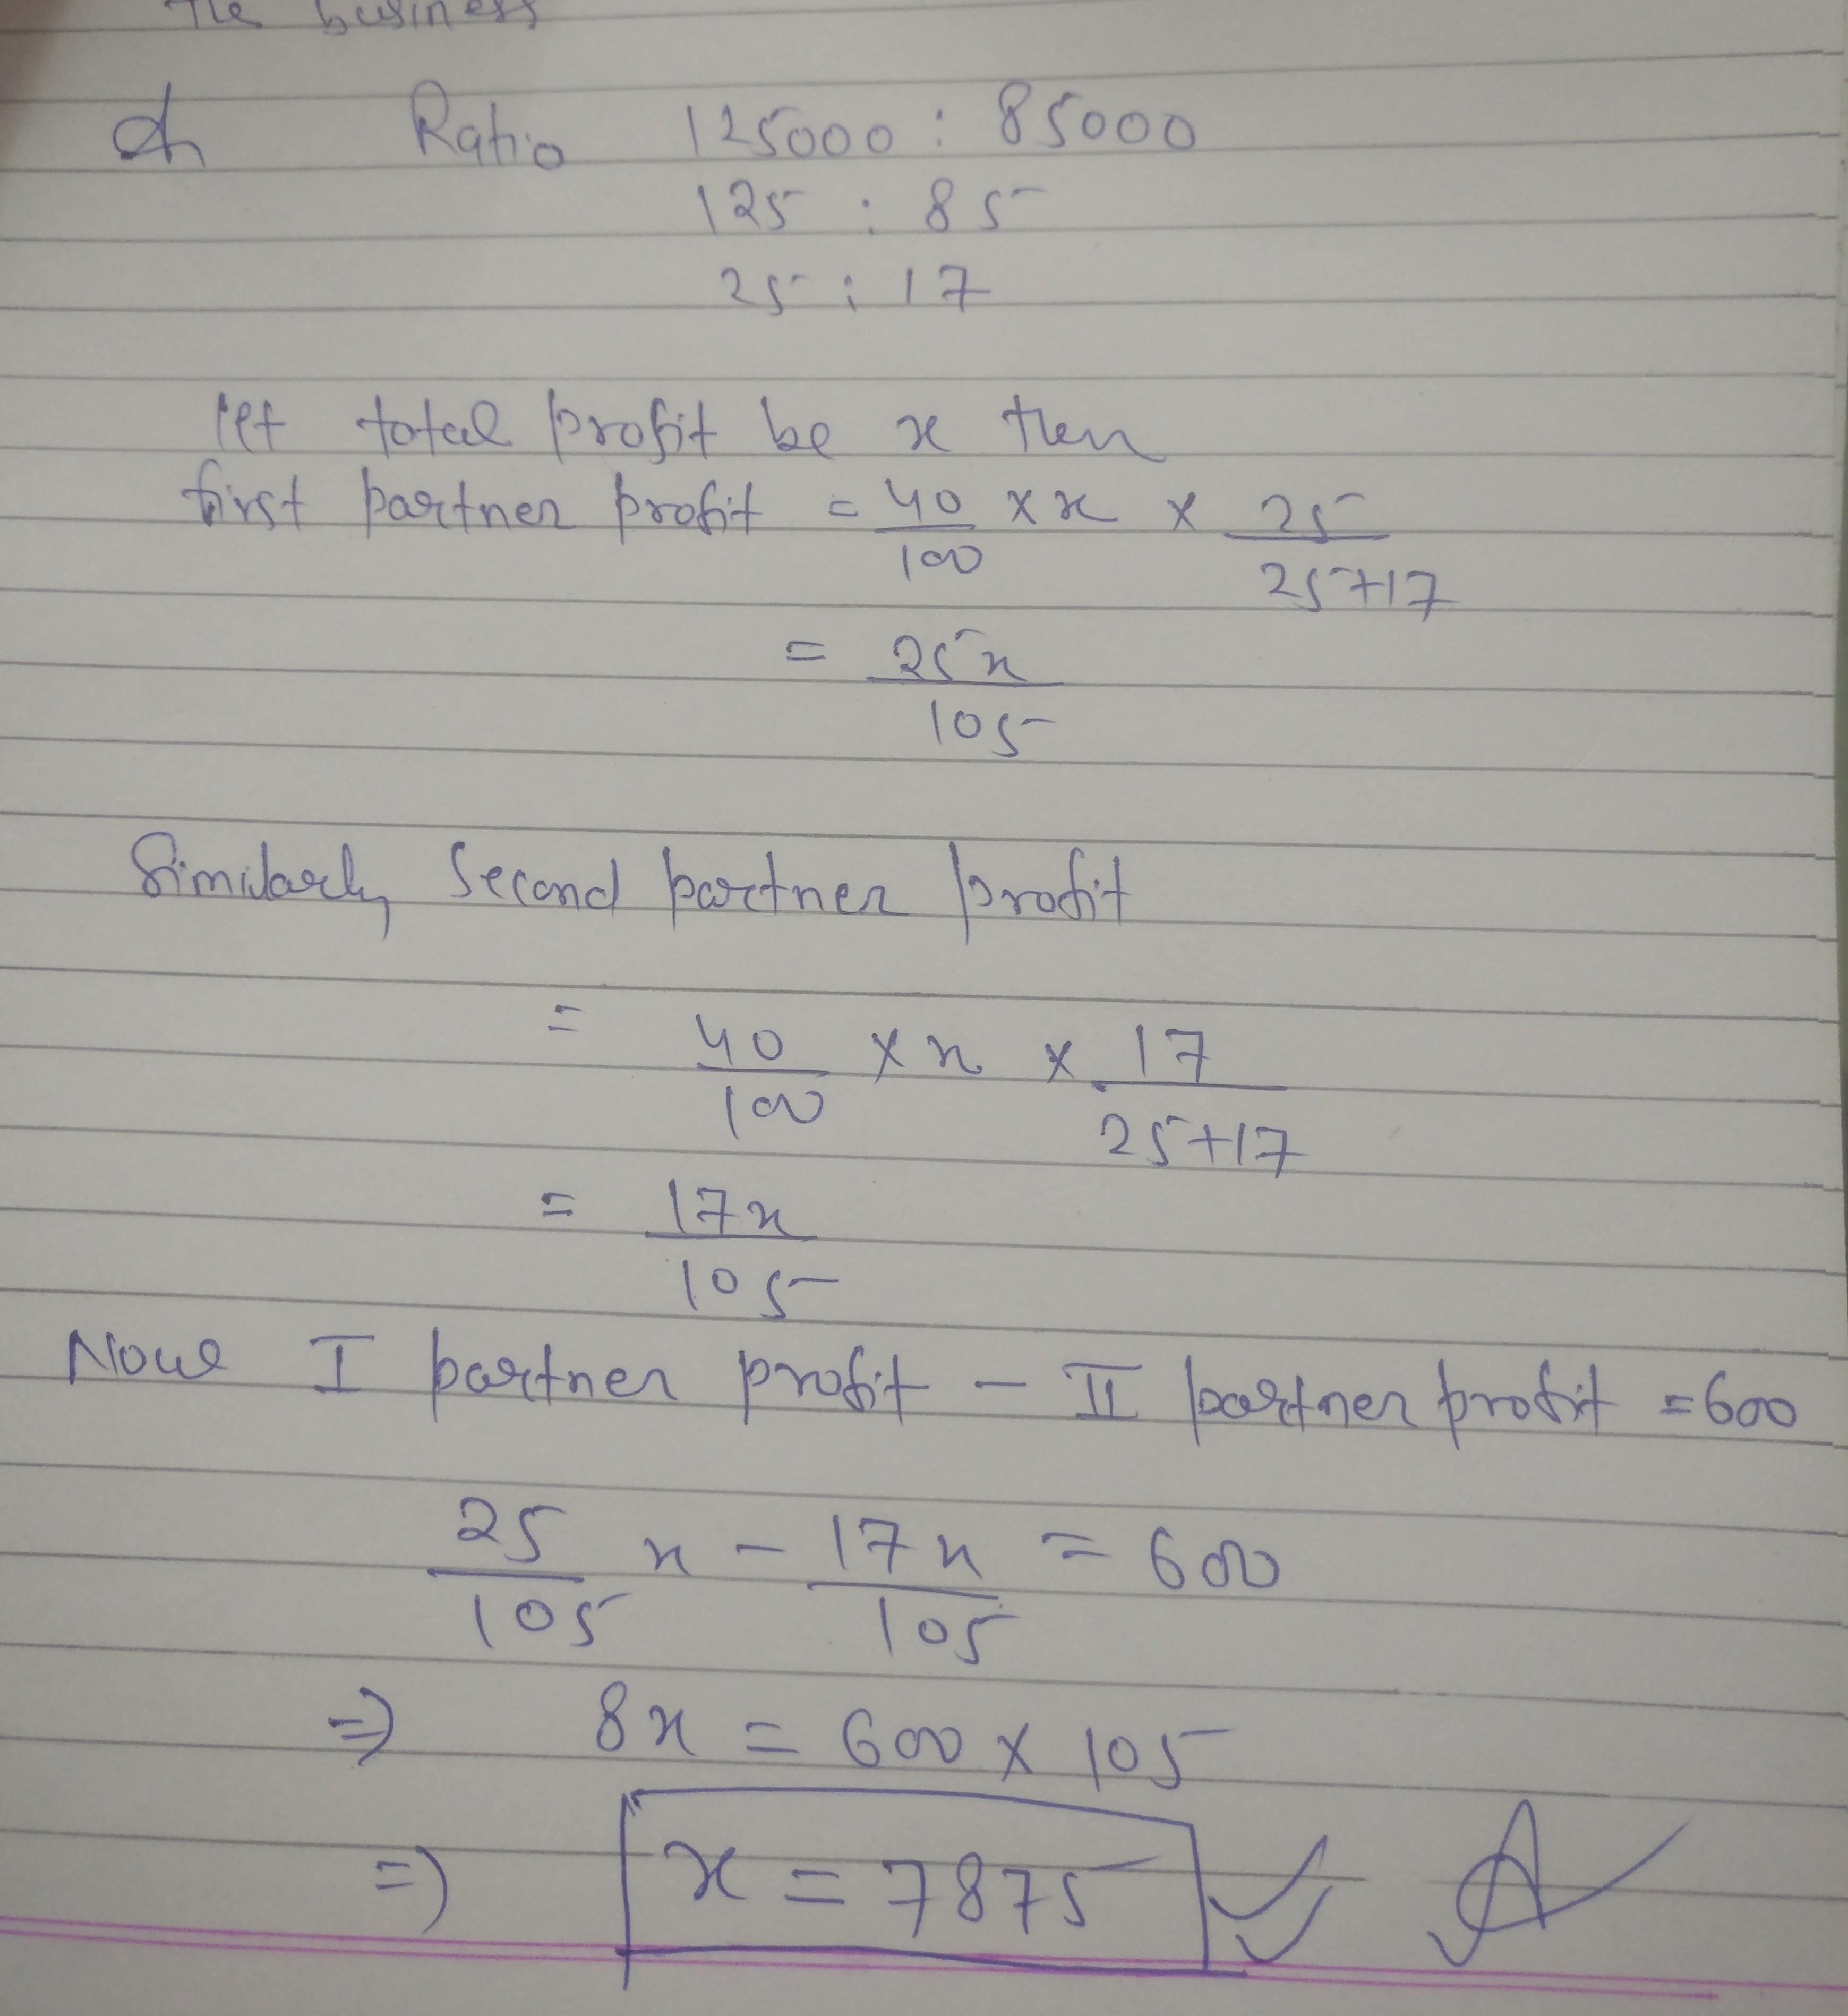 The business
Ratio 125000 : 85000
125 : 85
25 : 17
let total profit be x then
first partner profit = 40/100 × x × 25/25+17
= 25x/105
Similarly Second partner profit
= 40/100 × x × 17/25+17
= 17x/105
Now I partner profit - II partner profit = 600
25/105 x - 17x/105 = 600
⇒ 8x = 600 × 105
⇒ x = 7875